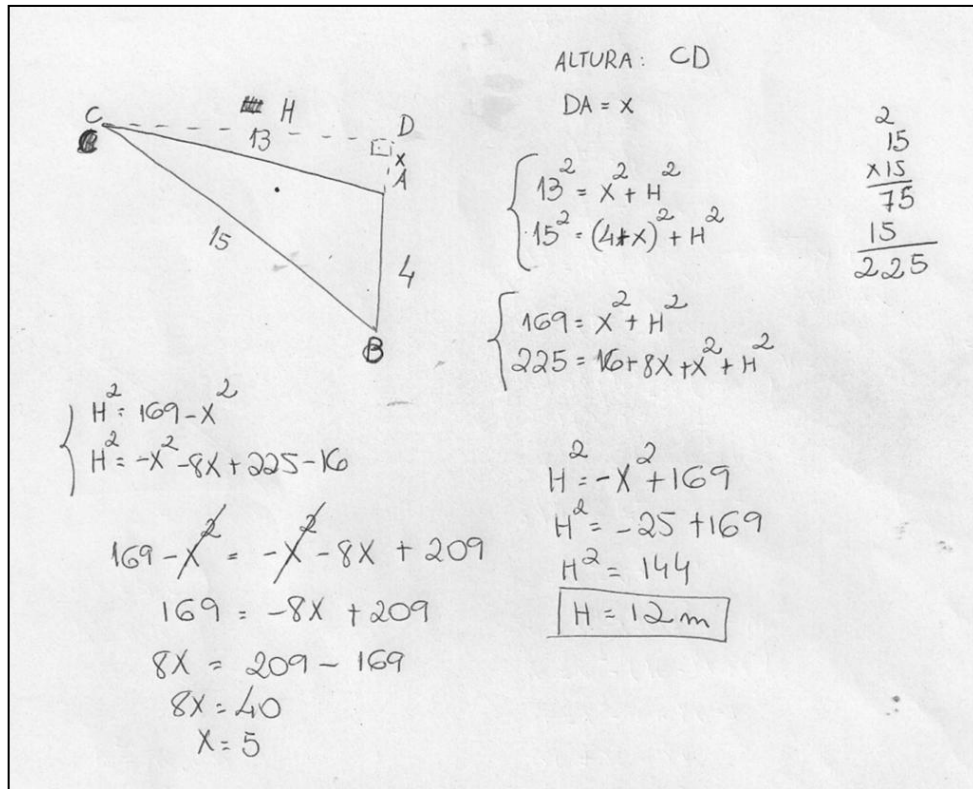 ALTURA: CD
DA = X
C
H
D
13
X
A
15
4
B
13² = X² + H²
15² = (4+X)² + H²
2
15
x15
75
15
225
169 = X² + H²
225 = 16+8X+X²+H²
H² = 169 - X²
H² = -X² - 8X + 225 - 16
169 - X² = -X² - 8X + 209
169 = -8X + 209
8X = 209 - 169
8X = 40
X = 5
H² = -X² + 169
H² = -25 + 169
H² = 144
H = 12 m